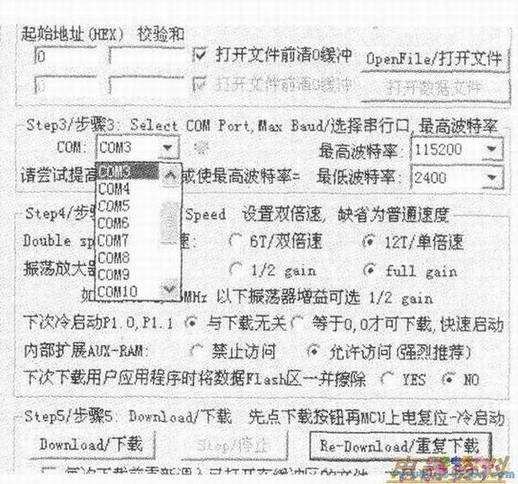 起始地址(HEX) 校验和
0 打开文件前清0缓冲 OpenFile/打开文件
0 打开文件前清0缓冲 打开数据文件
Step3/步骤3: Select COM Port,Max Baud/选择串行口,最高波特率
COM: COM3 最高波特率: 115200
请尝试提高 或使最高波特率= 最低波特率: 2400
COM3
COM4
COM5
COM6
COM7
COM8
COM9
COM10
Step4/步 Speed 设置双倍速,缺省为普通速度
Double sp 速: 6T/双倍速 12T/单倍速
振荡放大器 1/2 gain full gain
如 MHz 以下振荡器增益可选 1/2 gain
下次冷启动P1.0,P1.1 与下载无关 等于0,0才可下载,快速启动
内部扩展AUX-RAM: 禁止访问 允许访问(强烈推荐)
下次下载用户应用程序时将数据Flash区一并擦除 YES NO
Step5/步骤5: Download/下载 先点下载按钮再MCU上电复位-冷启动
Download/下载 Stop/停止 Re-Download/重复下载